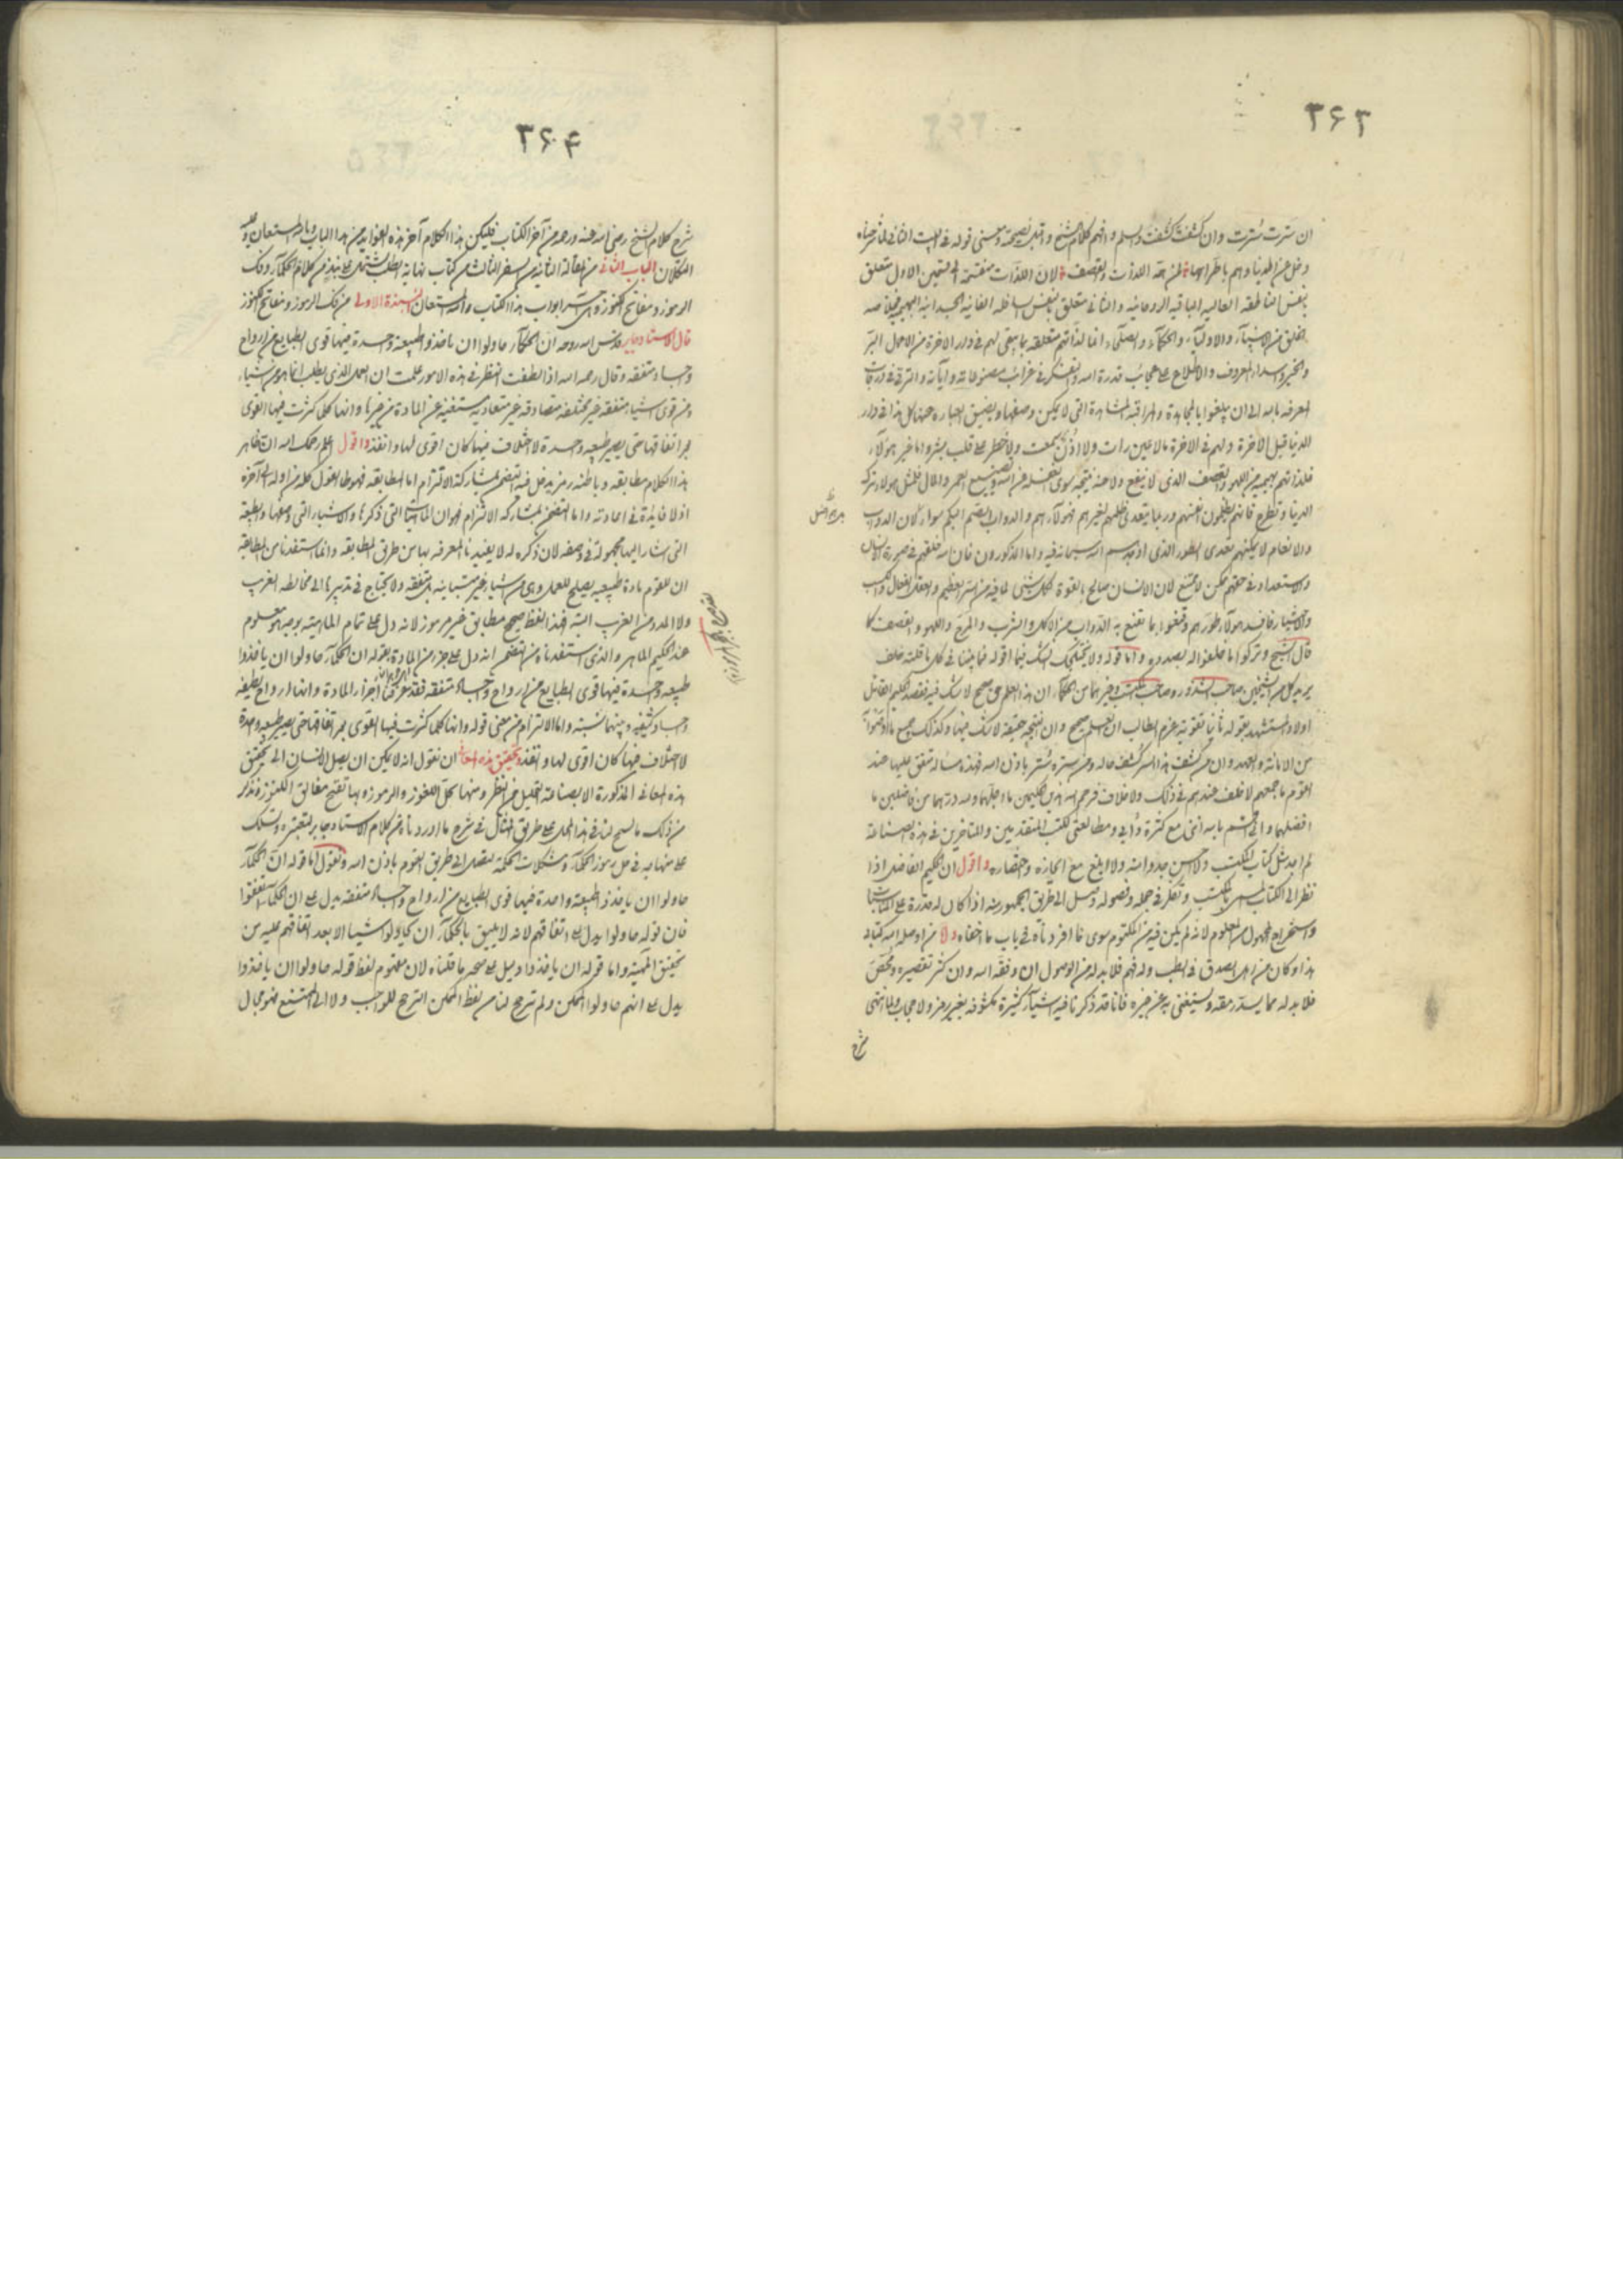 ٣۶٣
ان سترت سترت وان كشفت كشفت والسلم وافهم كلام الشيخ واقبل نصيحته ومعنى قوله في البيت الثاني
لان اللذات منقسمة الى قسمين الاول متعلق
بنفس الناطقه العاليه الباقيه الروحانيه والثاني متعلق بنفس السافله الفانيه الجسدانيه البهيميه
الخلق من الانبيآء والاوليآء والحكمآء والصلحآء انما لذاتهم متعلقه بما يبقى لهم في دار الاخرة من الاعمال البر
والخير والمعروف والاطلاع على عجائب قدرة الله والتفكر في غرائب مصنوعاته وآياته والترقي في درجات
المعرفه بالله الى ان يبلغوا بالمجاهدة والمراقبه المشاهدة التي لا يمكن وصفها ويضيق العباره عنها كل هذا في دار
الدنيا قبل الاخرة ولهم في الاخرة ما لا عين رات ولا اذن سمعت ولا خطر على قلب بشر واما غير هولآء
فلذاتهم بهيميه من اللهو والقصف الذي لا ينفع ولا نتيجه سوى الغفله عن الله وتضييع العمر والمال
الدنيا فانهم يظلمون انفسهم وربما يتعدى ظلمهم لغيرهم فهولآء هم والدواب الصم البكم سواء لان الدواب
والانعام لا يمكنهم تعدى الطور الذي اوجدهم الله سبحانه فيه واما المذكورون فان الله خلقهم في صورة الانسان
والاستعداد في حقهم ممكن لا ممتنع لان الانسان صالح بالقوة لكل شئ لما فيه من السر العظيم والعقل الفعال
فافسد هولآء طورهم وقنعوا بما تقنع به الدواب من الاكل والشرب والمرح واللهو والقصف كما
قال الشيخ وتركوا ما خلقوا له بصدده واما قوله ولا يختلجك الشك فيما اقوله فما بيننا في كل ما قلته خلف
يريد كل من الشيخين صاحب الشذور وصاحب المكتسب وغيرهما من الحكمآء ان هذا العلم حق صحيح لا شك فيه فقصد الحكيم الفاضل
اولا واستشهد بقوله ثانيا تقوية عزم الطالب ان العلم صحيح وان نتيجته حقيقة لا شك فيها وكذلك جميع ما
من الامانه والعهد وان من كشف هذا السر كشف حاله ومن ستره ستر باذن الله فهذه مساله متفق عليها عند
القوم باجمعهم لا خلف عندهم في ذلك ولا خلاف فرحم الله هذين الحكيمين ما اجلهما ولله درهما من فاضلين ما
افضلهما واني اقسم بالله انني مع كثرة دأبي ومطالعتي لكتب المتقدمين والمتاخرين في هذه الصناعة
لم اجد مثل كتاب المكتسب ولا احسن جدوا منه ولا ابلغ مع ايجازه واختصاره واقول ان الحكيم الفاضل اذا
نظر الى الكتاب المسمى بالمكتسب وتفكر في جمله وفصوله وصل الى طريق الجمهور منه اذا كان له قدرة على القياسات
واستخراج المجهول من المعلوم لانه لم يكن فيه من المكتوم سوى ما افردناه في باب ما اخفاه ولا من اوصله الله كتابه
هذا وكان من اهل الصدق في الطلب وله فهم فلا بد له من الوصول ان وفقه الله وان كثر تقصيره
فلا بد له مما يسد رمقه ويستغني به عن غيره فاننا قد ذكرنا فيه اشيآء كثيرة مكشوفه بغير رمز ولا حجاب ولما انتهى
شرح
٣۶۴
شرح كلام الشيخ رضي الله عنه ورحمه من آخر الكتاب فليكن هذا الكلام آخر هذه الفوايد من هذا الباب وبالله المستعان وعليه
التكلان الباب الثاني من المقالة الثانيه من السفر الثالث من كتاب نهاية الطلب يشتمل على نبذ من كلام الحكمآء وفك
الرموز ومفاتيح الكنوز وهي آخر ابواب هذا الكتاب والله المستعان النبذة الاولى من فك الرموز ومفاتيح الكنوز
قال الاستاد جابر قدس الله روحه ان الحكمآء حاولوا ان ياخذوا طبيعة واحدة فيها قوى الطبايع من ارواح
واجساد متفقه وقال رحمه الله اذا لطفت النظر في هذه الامور علمت ان العمل الذي يطلب انما هو من اشياء
ومن قوى اشياء متفقه غير مختلفه متصادقه غير متعاديه مستغنيه عن المادة من غيرها وانها كلما كثرت فيها القوى
مع اتفاقها حتى يصير طبيعه واحدة لا اختلاف فيها كان اقوى لها وانفذ واقول اعلم رحمك الله ان ظاهر
هذا الكلام مطابقه وباطنه رمز يدخل فيه التضمن بمشاركة الالتزام اما المطابقه فهو ظاهر القول كله من اوله الى آخره
اذ لا فايدة في اعادته واما التضمن بمشاركه الالتزام فهو ان التي ذكرها والاشياء التي وصفها والطبيعه
التي اشار اليها مجهولة في وصفه لان ذكره له لا يفيدنا المعرفه بها من طريق المطابقه وانما استفدنا من المطابقة
ان للقوم مادة طبيعيه يصلح للعمل وهي من اشياء غير متباينه بل متفقه ولا يحتاج في تدبيرها الى مخالطه الغريب
ولا المدد من الغريب البتة فهذا اللفظ صحيح مطابق غير مرموز لانه دل على تمام الماهيته بوجه معلوم
عند الحكيم الماهر والذي استفدناه من التضمن انه دل على جزء من المادة بقوله ان الحكمآء حاولوا ان ياخذوا
طبيعه واحدة فيها قوى الطبايع من ارواح واجساد متفقه فقد عرفنا اجزاء المادة وانها ارواح لطيفه
واجساد كثيفه وبينهما نسبته واما الالتزام من معنى قوله وانها كلما كثرت فيها القوى مع اتفاقها حتى يصير طبيعه واحدة
لا اختلاف فيها كان اقوى لها وانفذ وتحقيق هذه المعاني ان نقول انه لا يمكن ان يصل الانسان الى تحقيق
هذه المعاني المذكورة الا بصناعة التحليل من النظر ومنها حل اللغوز والرموز وبها تفتح مغالق الكنوز فنذكر
من ذلك ما سمح لنا في هذا المحل على طريق المثال في شرح ما اوردناه من كلام الاستاد جابر لتعتبره وتسلك
على منهاجه في حل رموز الحكمآء ومشكلات الحكمة لتصل الى طريق القوم باذن الله ونقول اما قوله ان الحكمآء
حاولوا ان ياخذوا طبيعة واحدة فيها قوى الطبايع من ارواح واجساد متفقه يدل على ان الحكمآء اتفقوا
فان قوله حاولوا يدل على اتفاقهم لانه لا يليق بالحكمآء ان يحاولوا شيئا الا بعد اتفاقهم عليه من
تحقيق الكمية واما قوله ان ياخذوا دليل على صحه ما قلناه لان مفهوم لفظ قوله حاولوا ان ياخذوا
يدل على انهم حاولوا الممكن ولم ترجح لنا من لفظ الممكن الترجح للواجب ولا الى الممتنع